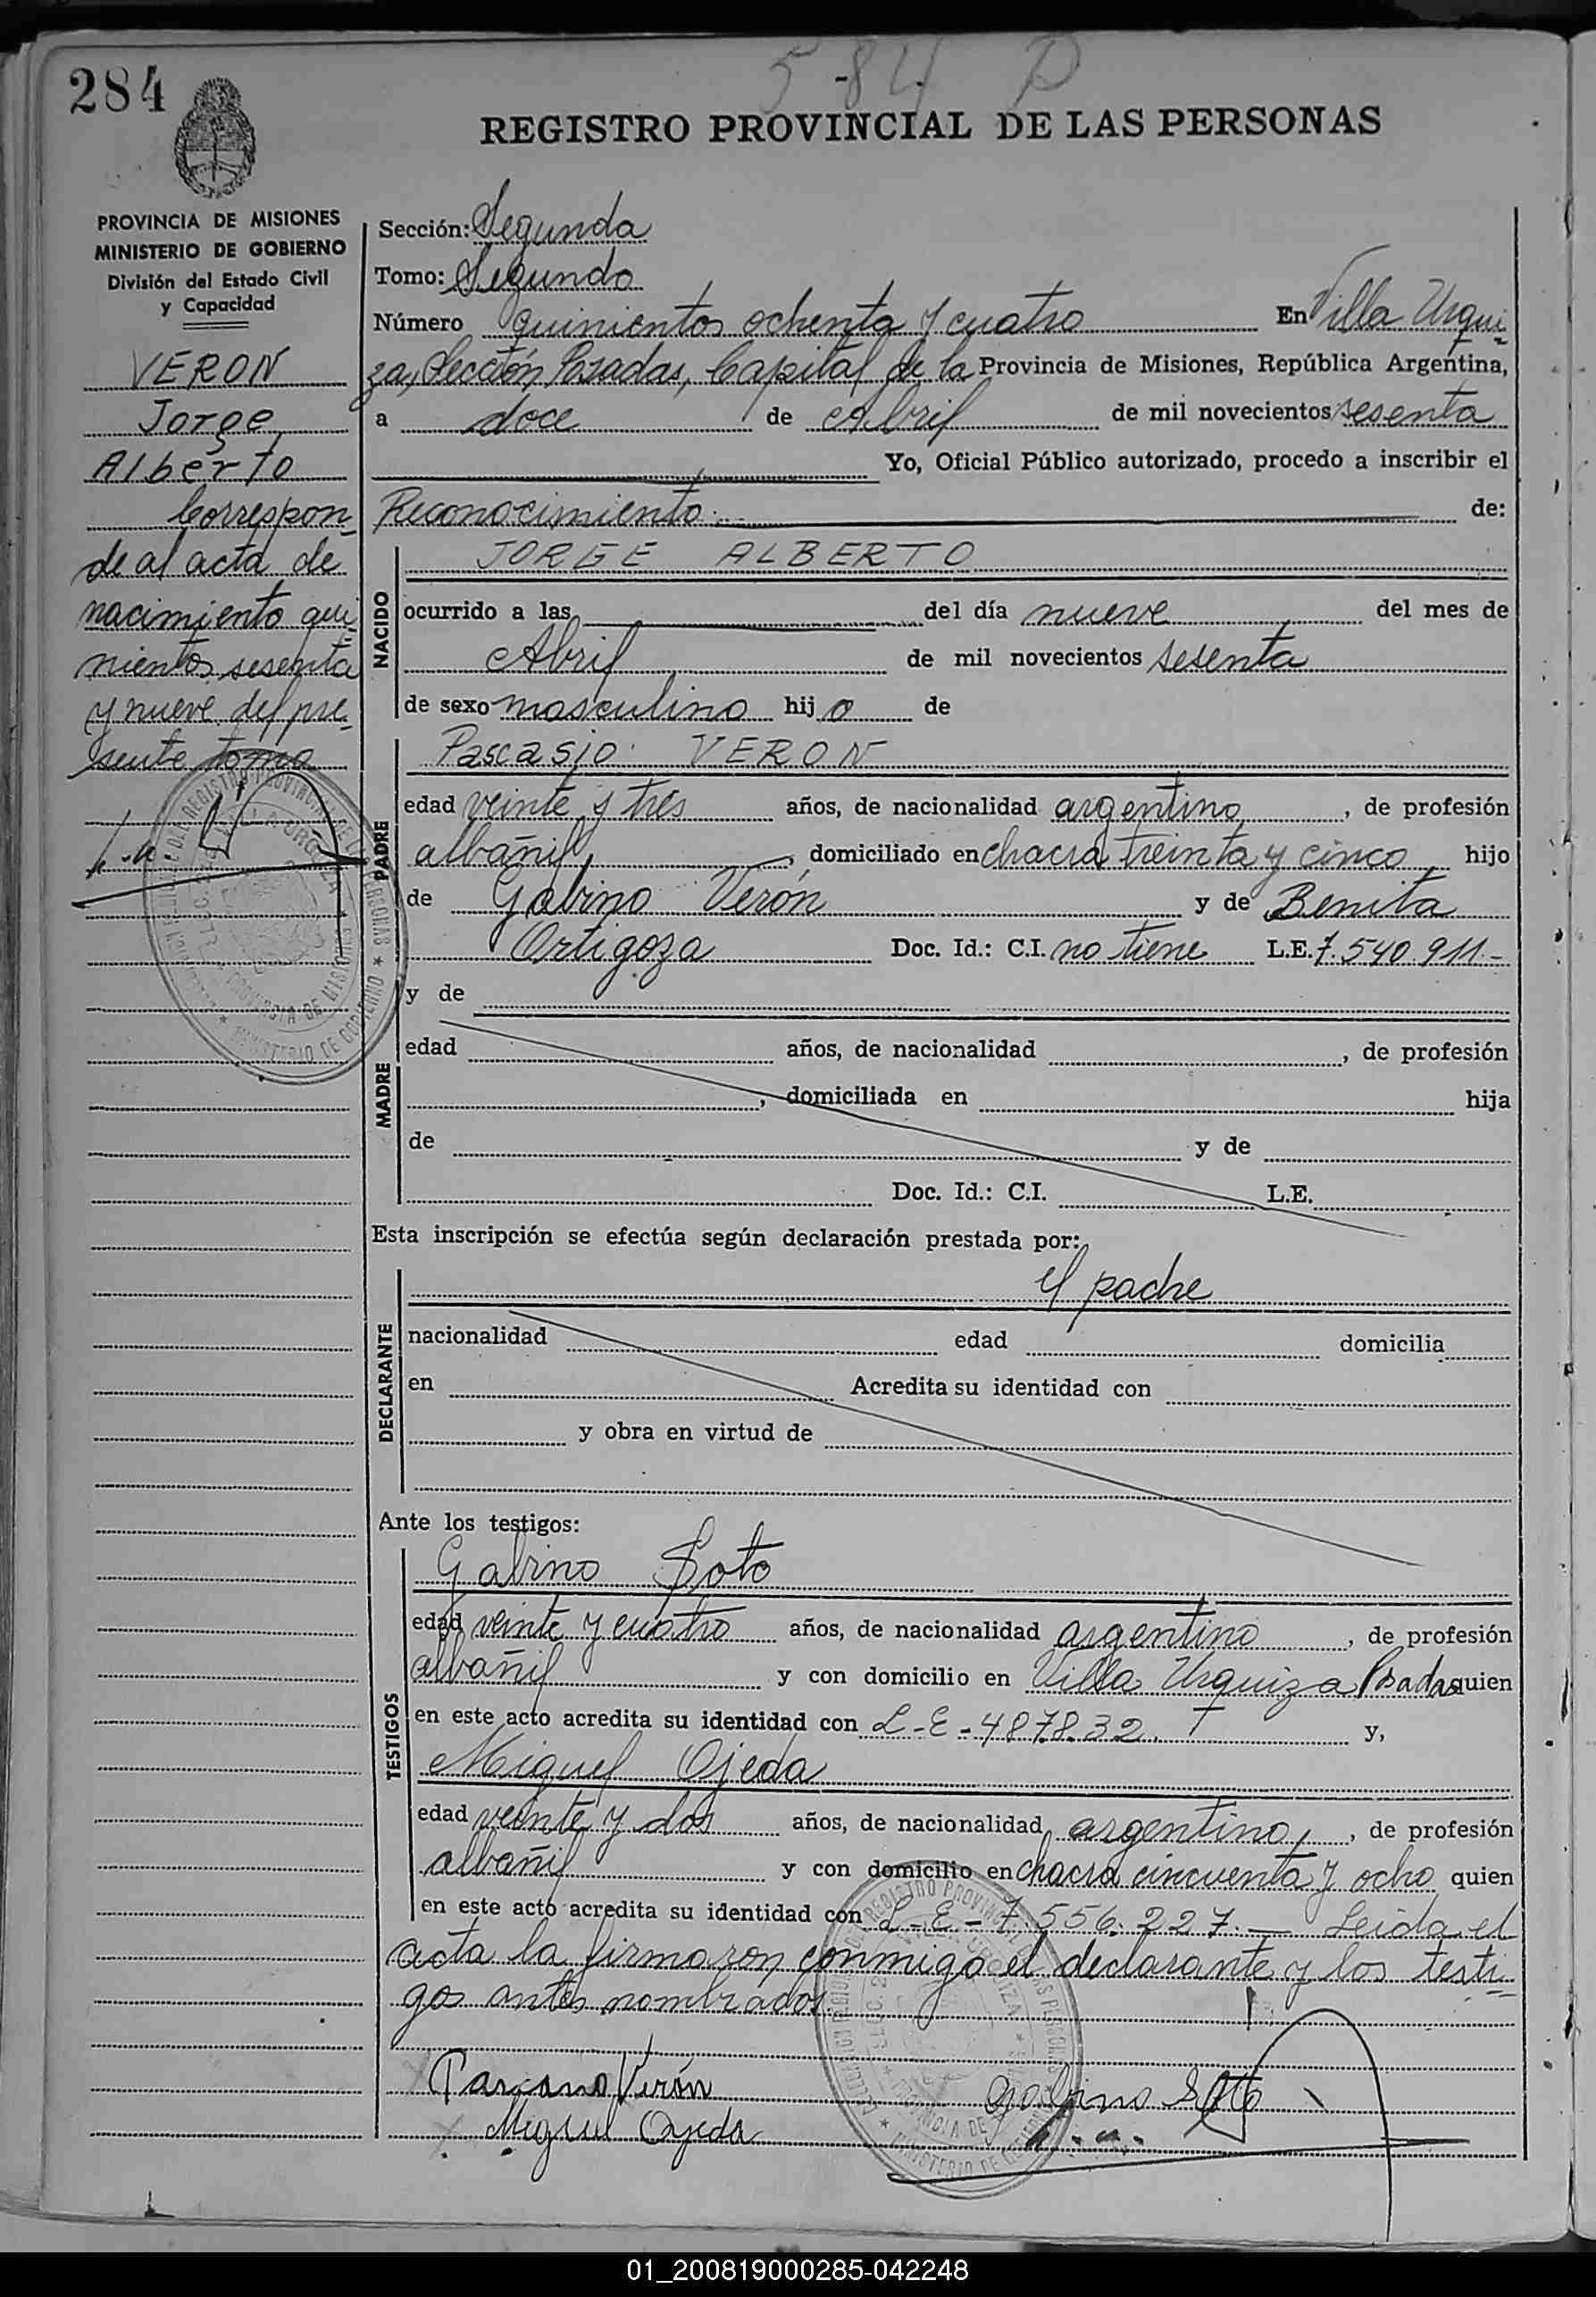 284
5-84 P
REGISTRO PROVINCIAL DE LAS PERSONAS
PROVINCIA DE MISIONES
MINISTERIO DE GOBIERNO
División del Estado Civil
y Capacidad
VERON
Jorge
Alberto
Correspon
de al acta de
nacimiento qui
nientos sesenta
y nueve del pre
sente tomo
Sección: Segunda
Tomo: Segundo
Número quinientos ochenta y cuatro En Villa Urqui
za, Sección Posadas, Capital de la Provincia de Misiones, República Argentina,
a doce de Abril de mil novecientos sesenta
Yo, Oficial Público autorizado, procedo a inscribir el
Reconocimiento de:
NACIDO
JORGE ALBERTO
ocurrido a las del día nueve del mes de
Abril de mil novecientos sesenta
de sexo masculino hijo de
PADRE
Pascasio VERON
edad veinte y tres años, de nacionalidad argentino, de profesión
albañil, domiciliado en chacra treinta y cinco hijo
de Gabino Verón y de Benita
Ortigoza Doc. Id.: C.I. no tiene L.E. 7.540.911.-
MADRE
y de
edad años, de nacionalidad , de profesión
, domiciliada en hija
de y de
Doc. Id.: C.I. L.E.
Esta inscripción se efectúa según declaración prestada por:
DECLARANTE
el padre
nacionalidad edad domicilia
en Acredita su identidad con
y obra en virtud de
Ante los testigos:
TESTIGOS
Gabino Soto
edad veinte y cuatro años, de nacionalidad argentino, de profesión
albañil y con domicilio en Villa Urquiza Posadas quien
en este acto acredita su identidad con L-E-487832. y,
Miguel Ojeda
edad veinte y dos años, de nacionalidad argentino, de profesión
albañil y con domicilio en chacra cincuenta y ocho quien
en este acto acredita su identidad con L-E-7.556.227.— Leida el
acta la firmaron conmigo el declarante y los testi
gos antes nombrados
Verón
Gabino Soto
Miguel Ojeda
01_200819000285-042248